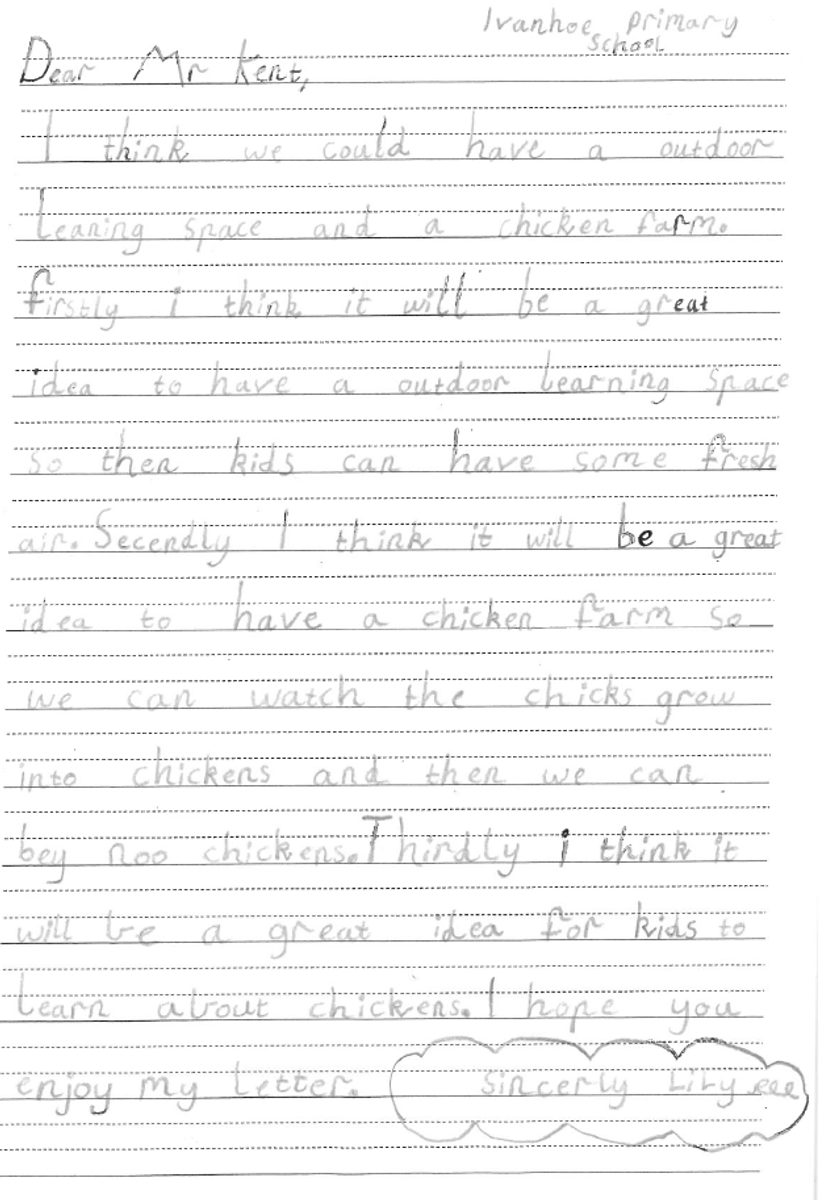 Ivanhoe primary
school
Dear Mr Kent,
I think we could have a outdoor
Leaning space and a chicken farm.
firstly i think it will be a great
idea to have a outdoor learning space
so then kids can have some fresh
air. Secendly I think it will be a great
idea to have a chicken farm so
we can watch the chicks grow
into chickens and then we can
bey noo chickens. Thirdly i think it
will be a great idea for kids to
learn about chickens. I hope you
enjoy my letter. Sincerly Lily